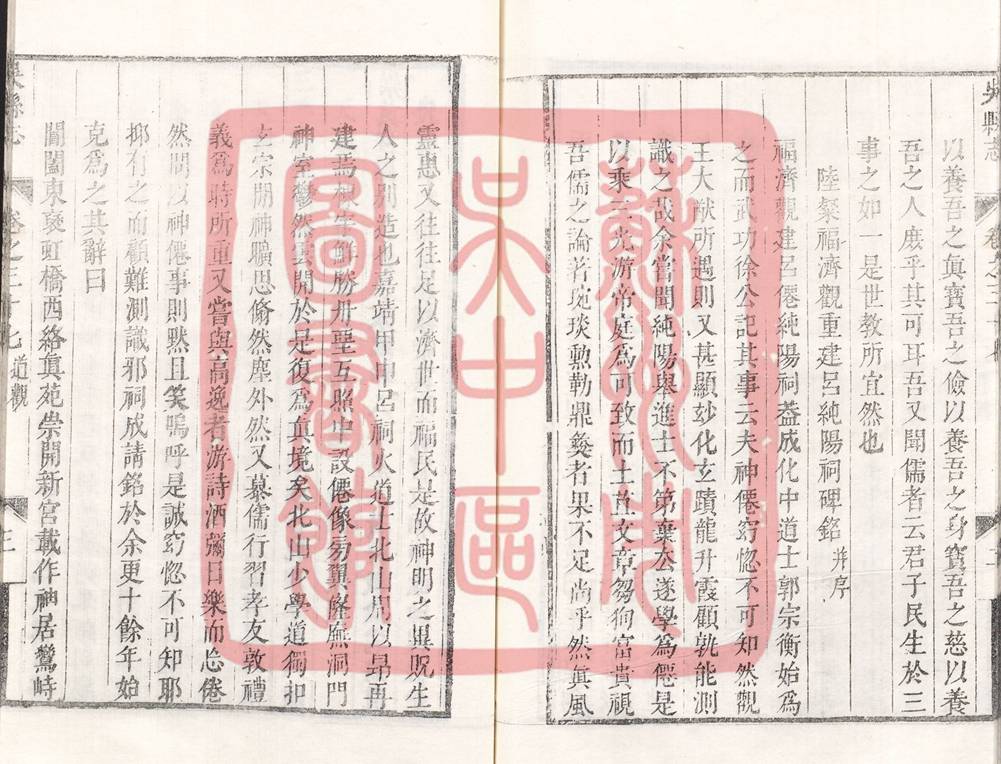 吳縣志
卷之三十七
以養吾之眞寶吾之儉以養吾之身寶吾之慈以養
吾之人庶乎其可耳吾又聞儒者云君子民生於三
事之如一是世教所宜然也
陸粲福濟觀重建呂純陽祠碑銘 并序
福濟觀建呂僊純陽祠葢成化中道士郭宗衡始爲
之而武功徐公記其事云夫神僊窈惚不可知然觀
王大猷所遇則又甚顯玅化玄蹟龍升霞顧孰能測
識之哉余嘗聞純陽舉進士不第棄去遂學爲僊是
以乘三光游帝庭爲可致而土苴文章芻狗富貴視
吾儒之論著琬琰勲勒鼎彜者果不足尚乎然眞風
靈惠又往往足以濟世而福民是故神明之異貺生
人之別造也嘉靖甲申呂祠火道士北山周以昻再
建焉棟宇鮮勝丹堊互照中設僊像旁翼脩廡洞門
神室鬱然雲開於是復爲眞境矣北山少學道獨扣
玄宗閒神曠思翛然塵外然又慕儒行習孝友敦禮
義爲時所重又嘗與高逸者游詩酒彌日樂而忘倦
然問以神僊事則黙且笑嗚呼是誠窈惚不可知耶
抑有之而顧難測識邪祠成請銘於余更十餘年始
克爲之其辭曰
閶闔東褒虹橋西絡眞苑崇開新宮載作神居鷟峙
吳縣志
卷之三十七 道觀
三
蘇州市
吳中區
圖書館